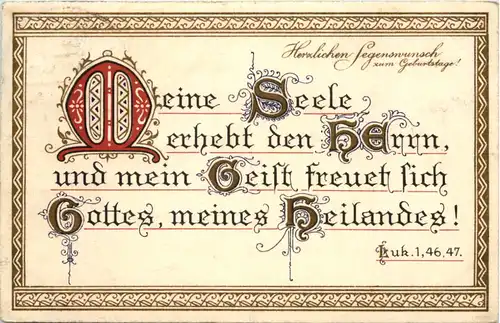 Herzlichen Segenswunsch
zum Geburtstage!
Meine Seele
erhebt den HErrn,
und mein Geist freuet sich
Gottes, meines Heilandes!
Luk. 1, 46. 47.